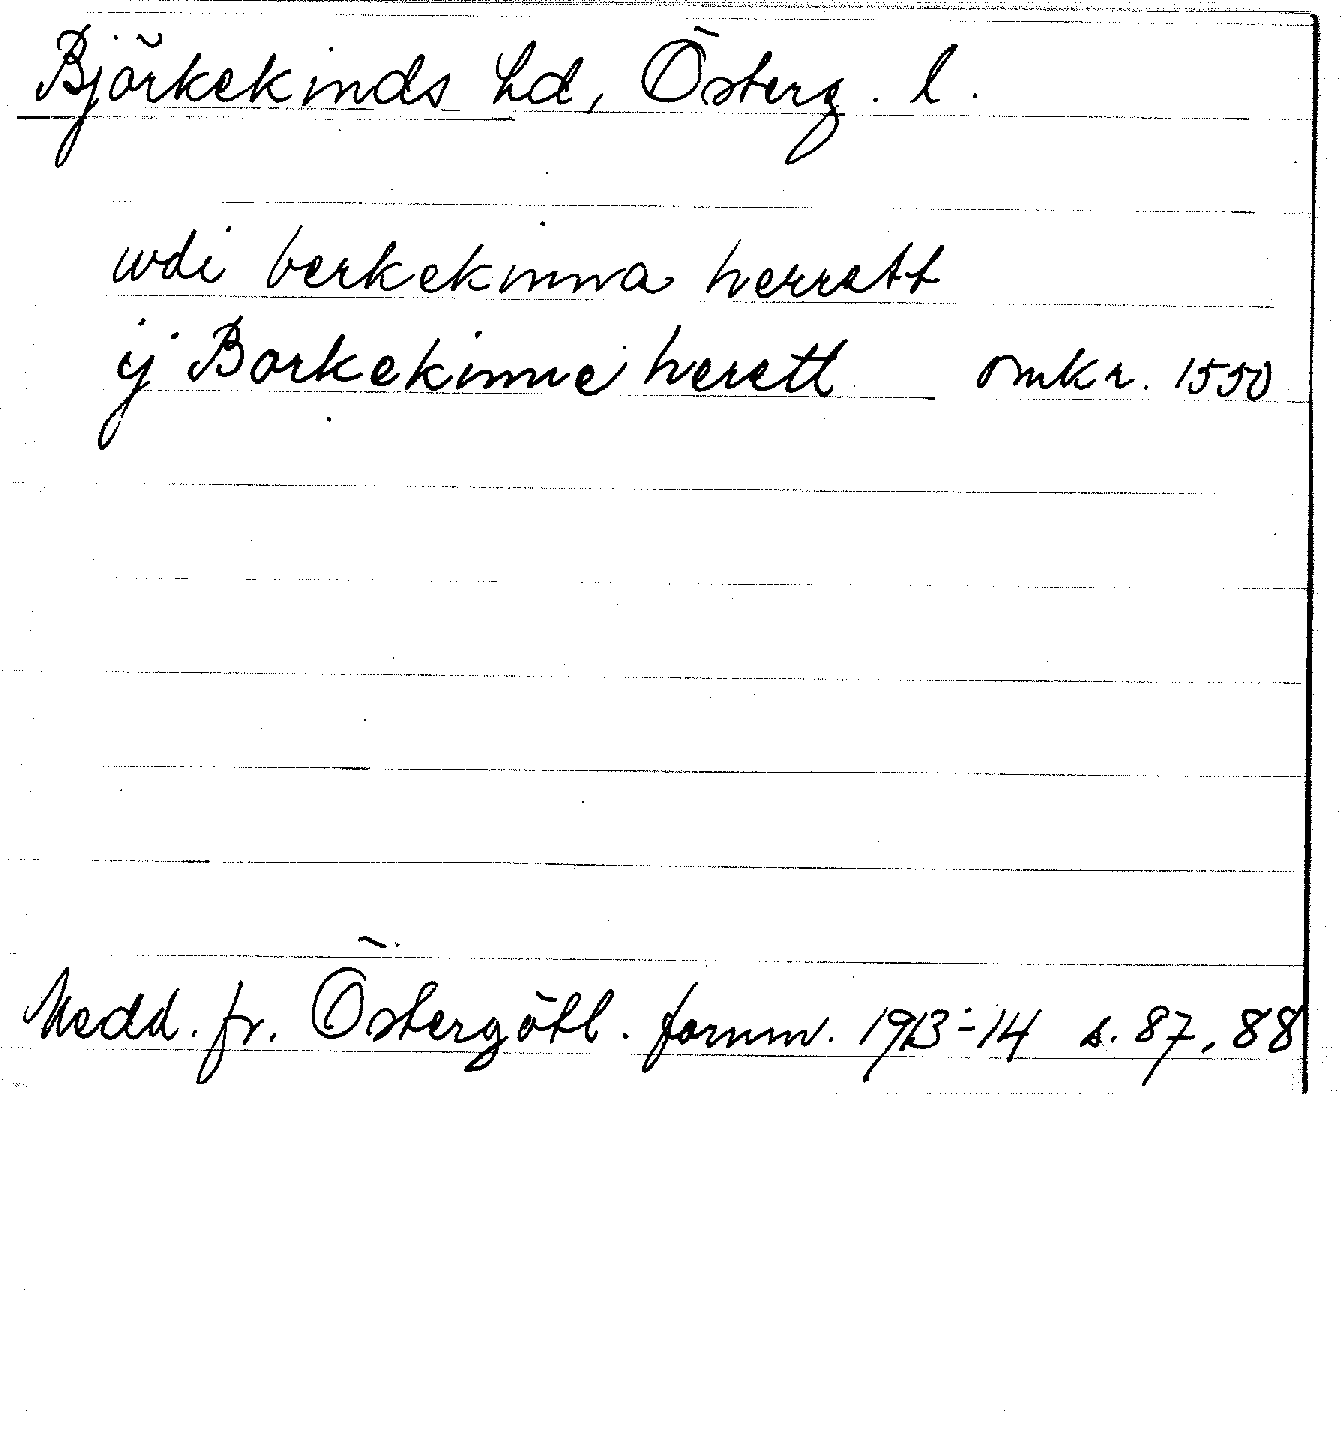 Björkekinds hd, Österg. l.
wdi berkekinna herrett
ij Borkekinne herett omkr. 1550
Medd. fr. Östergötl. fornm. 1913-14 s. 87, 88